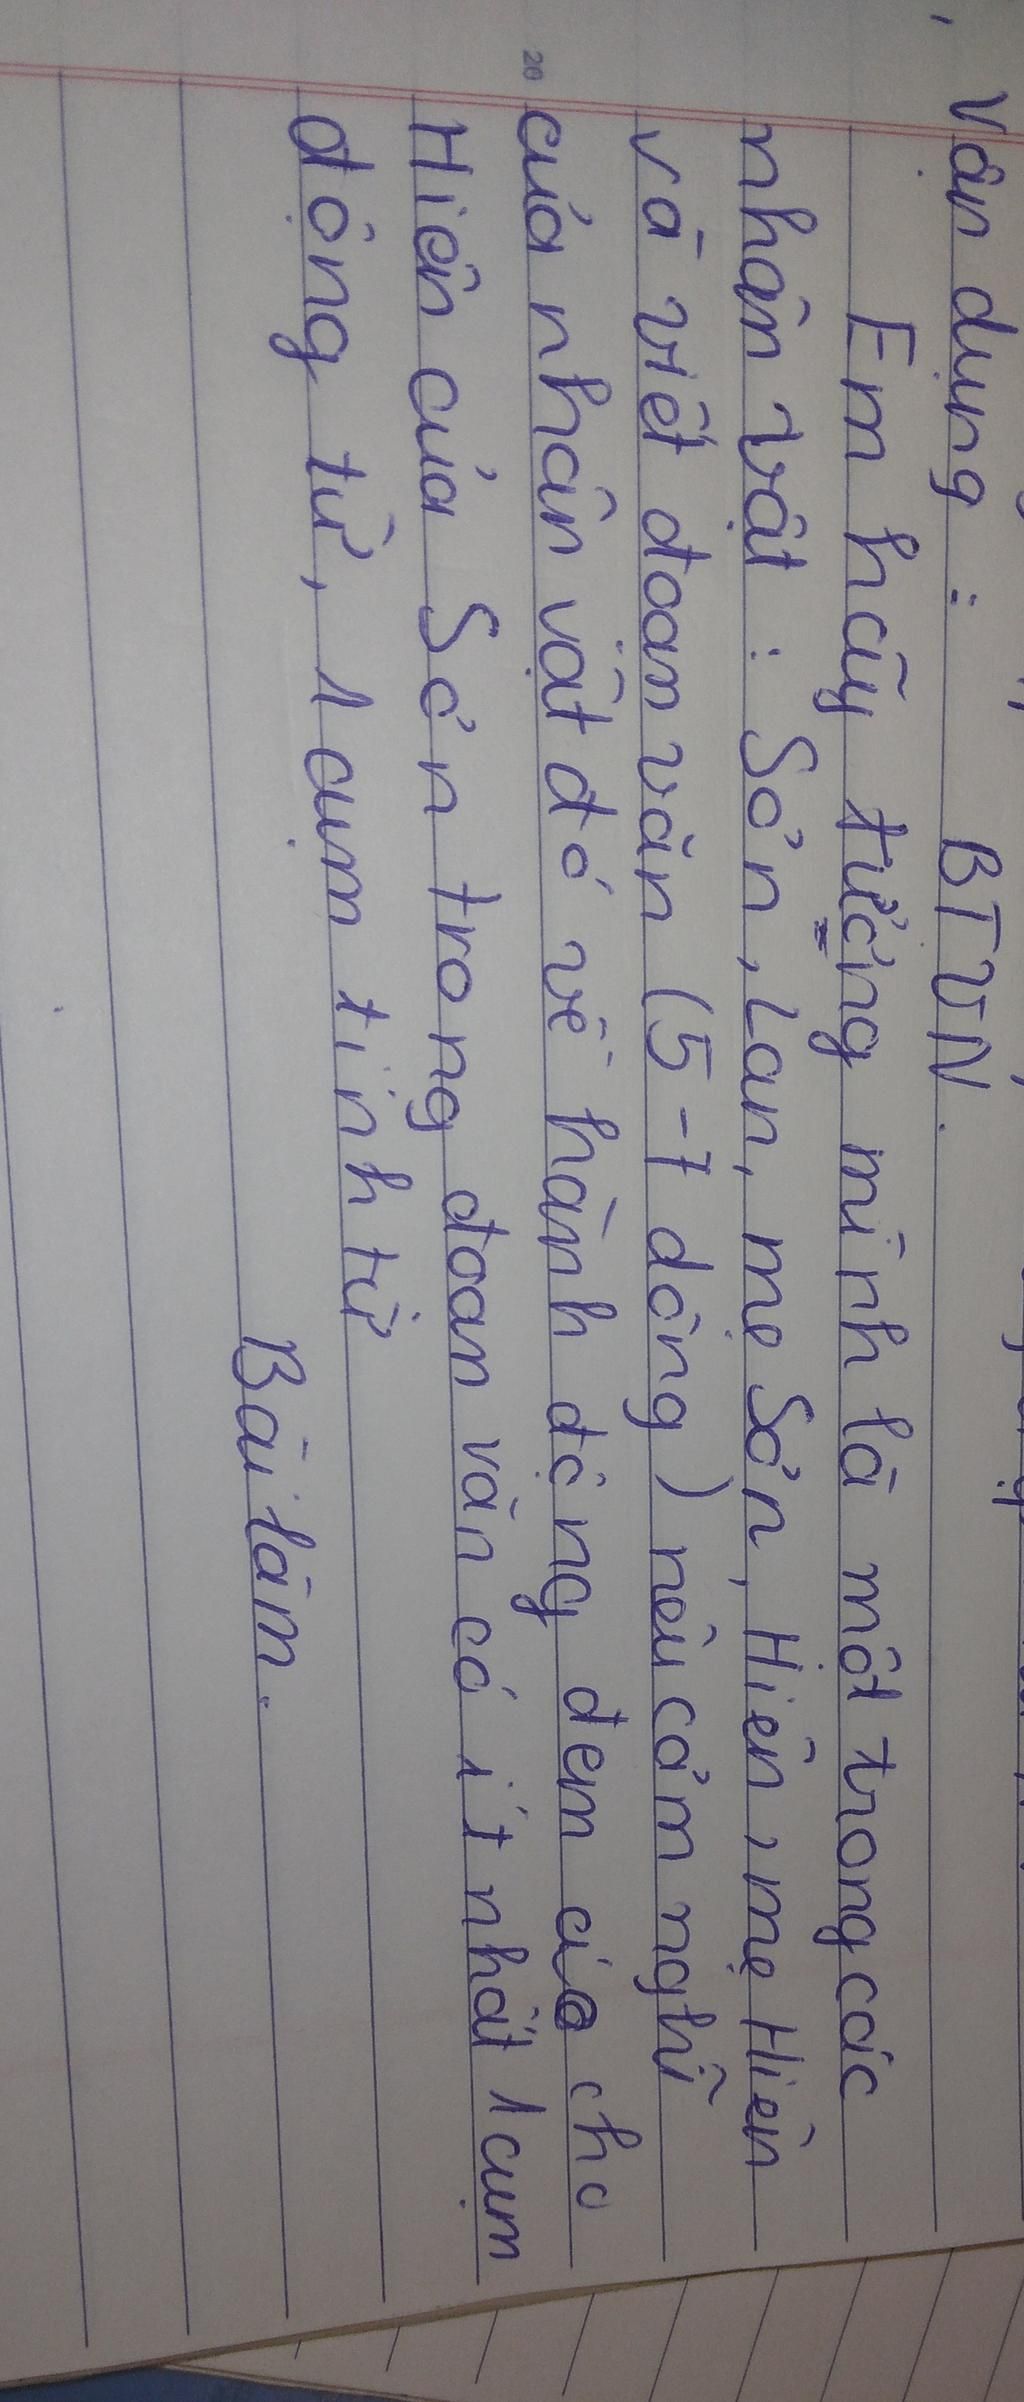 Vận dụng : BTVN.
Em hãy tưởng mình là một trong các
nhân vật : Sơn, Lan, mẹ Sơn, Hiên, mẹ Hiên
và viết đoạn văn (5-7 dòng) nêu cảm nghĩ
của nhân vật đó về hành động đem áo cho
Hiên của Sơn trong đoạn văn có ít nhất 1 cụm
động từ, 1 cụm tính từ
Bài làm.
20